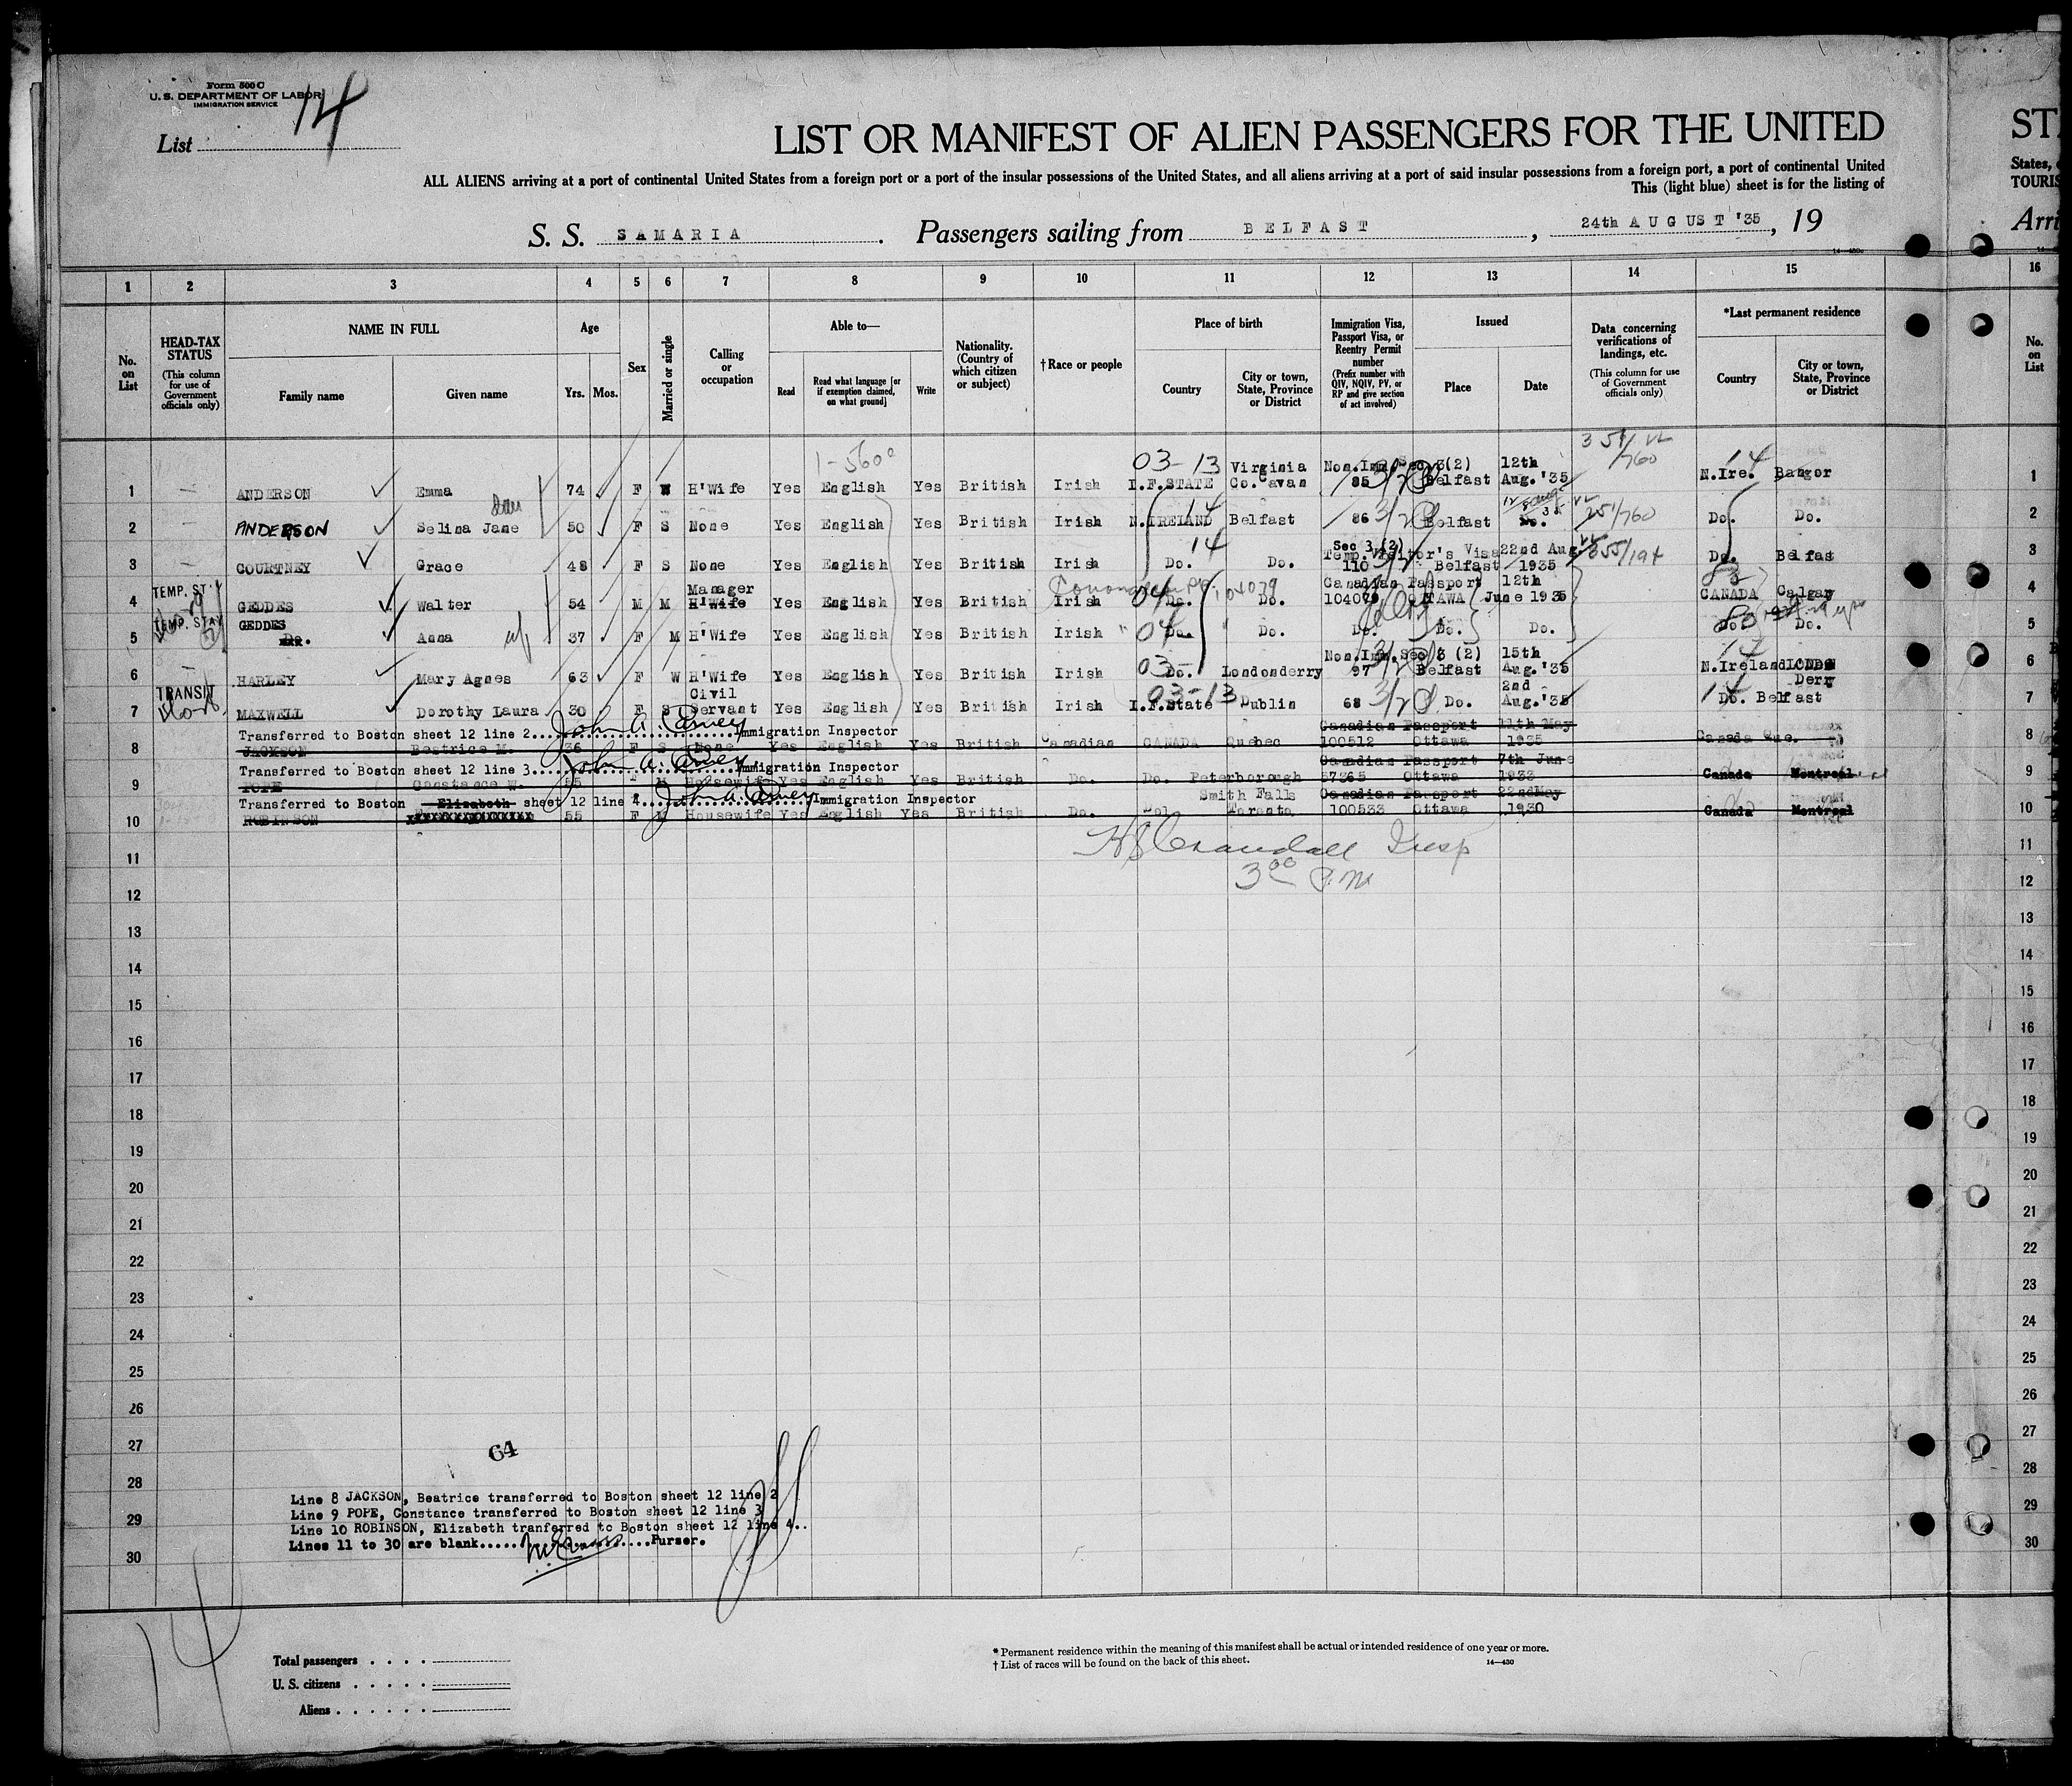 Form 500 C
U. S. DEPARTMENT OF LABOR
IMMIGRATION SERVICE
List 14
LIST OR MANIFEST OF ALIEN PASSENGERS FOR THE UNITED
ST
ALL ALIENS arriving at a port of continental United States from a foreign port or a port of the insular possessions of the United States, and all aliens arriving at a port of said insular possessions from a foreign port, a port of continental United
States,
This (light blue) sheet is for the listing of
TOURIS
S. S. SAMARIA. Passengers sailing from BELFAST, 24th AUGUST '35, 19
Arri
14-430
1 2 3 4 5 6 7 8 9 10 11 12 13 14 15 16
No. on List
HEAD-TAX STATUS (This column for use of Government officials only)
NAME IN FULL
Family name
Given name
Age
Yrs.
Mos.
Sex
Married or single
Calling or occupation
Able to—
Read
Read what language [or if exemption claimed, on what ground]
Write
Nationality. (Country of which citizen or subject)
†Race or people
Place of birth
Country
City or town, State, Province or District
Immigration Visa, Passport Visa, or Reentry Permit number (Prefix number with QIV, NQIV, PV, or RP and give section of act involved)
Issued
Place
Date
Data concerning verifications of landings, etc. (This column for use of Government officials only)
*Last permanent residence
Country
City or town, State, Province or District
No. on List
03-13 Virginia Non.Imm.Sec 3(2) 12th 14
1 — ANDERSON Emma 74 F W H'Wife Yes English Yes British Irish I.F.STATE Co. Cavan 85 3/2 Belfast Aug.'35 N.Ire. Bangor 1
14
2 — ANDERSON Selina Jane 50 F S None Yes English Yes British Irish N.IRELAND Belfast 86 3/2 Belfast Do. 251/760 Do. Do. 2
14 Sec 3 (2) Temp. Visitor's Visa 22nd Aug
3 — COURTNEY Grace 48 F S None Yes English Yes British Irish Do. Do. 110 Belfast 1935 Do. Belfas 3
TEMP. ST'Y Manager Canadian Passport 12th
4 GEDDES Walter 54 M M H'Wife Yes English Yes British Irish 04 Do. Do. 104079 OTTAWA June 1935 CANADA Calgary 4
TEMP. STAY GEDDES
5 Do. Anna 37 F M H'Wife Yes English Yes British Irish 04 Do. Do. Do. Do. Do. Do. Do. 5
Non.Imm.Sec 3 (2) 15th 14
6 — HARLEY Mary Agnes 63 F W H'Wife Yes English Yes British Irish 03- Do. Londonderry 97 3/2 Belfast Aug.'35 N.Ireland LONDON Derry 6
TRANSIT Civil 03-13 2nd 14
7 MAXWELL Dorothy Laura 30 F S Servant Yes English Yes British Irish I.F.State Dublin 68 3/2 Do. Aug.'35 Do. Belfast 7
Transferred to Boston sheet 12 line 2 John A. Carney Immigration Inspector Canadian Passport 11th May
8 JACKSON Beatrice M. 36 F S None Yes English Yes British Canadian CANADA Quebec 100512 Ottawa 1935 Canada Que. 8
Transferred to Boston sheet 12 line 3 John A. Carney Immigration Inspector Canadian Passport 7th June
9 POPE Constance W. F M Housewife Yes English Yes British Do. Do. Peterborough 57365 Ottawa 1933 Canada Montreal 9
Transferred to Boston Elizabeth sheet 12 line 4 John A. Carney Immigration Inspector Smith Falls Canadian Passport 22ndMay
10 ROBINSON XXXXXXXXXXXXXXX 55 F M Housewife Yes English Yes British Do. Toronto 100533 Ottawa 1930 Canada Montreal 10
11 Crandall Insp 11
12 3 00 P.M 12
13 13
14 14
15 15
16 16
17 17
18 18
19 19
20 20
21 21
22 22
23 23
24 24
25 25
26 26
27 27
64
28 28
Line 8 JACKSON, Beatrice transferred to Boston sheet 12 line 2
Line 9 POPE, Constance transferred to Boston sheet 12 line 3
29 29
Line 10 ROBINSON, Elizabeth tranferred to Boston sheet 12 line 4..
Lines 11 to 30 are blank..........Purser.
30 30
14
Total passengers
U. S. citizens
Aliens
* Permanent residence within the meaning of this manifest shall be actual or intended residence of one year or more.
† List of races will be found on the back of this sheet.
14—430